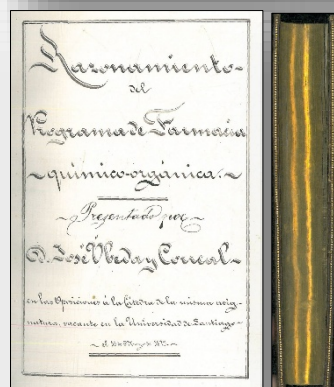 Razonamiento
del
Programa de Farmacia
químico-orgánica.
Presentado por
D. José Úbeda y Correal
en las Oposiciones á la Cátedra de la misma asig-
natura, vacante en la Universidad de Santiago
el